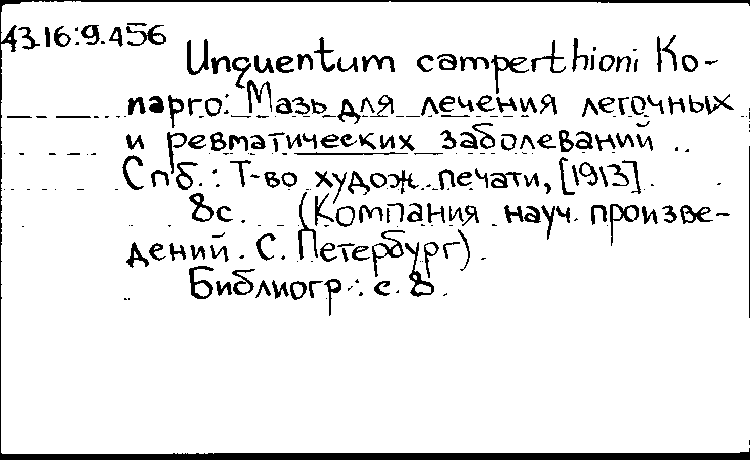 43.16:9.456
Unguentum camperthioni Ко-
парго: Мазь для лечения легочных
и ревматических заболеваний ..
Спб.: Т-во худож. печати, [1913].
8с. (Компания науч. произве-
дений. С. Петербург).
Библиогр.: с. 8.